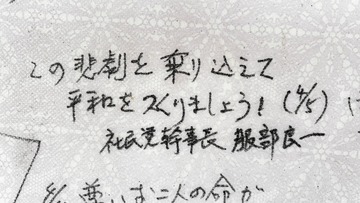 この悲劇を乗り込えて
平和をつくりましょう！(4/5)
社民党幹事長 服部良一
尊い お二人の命が